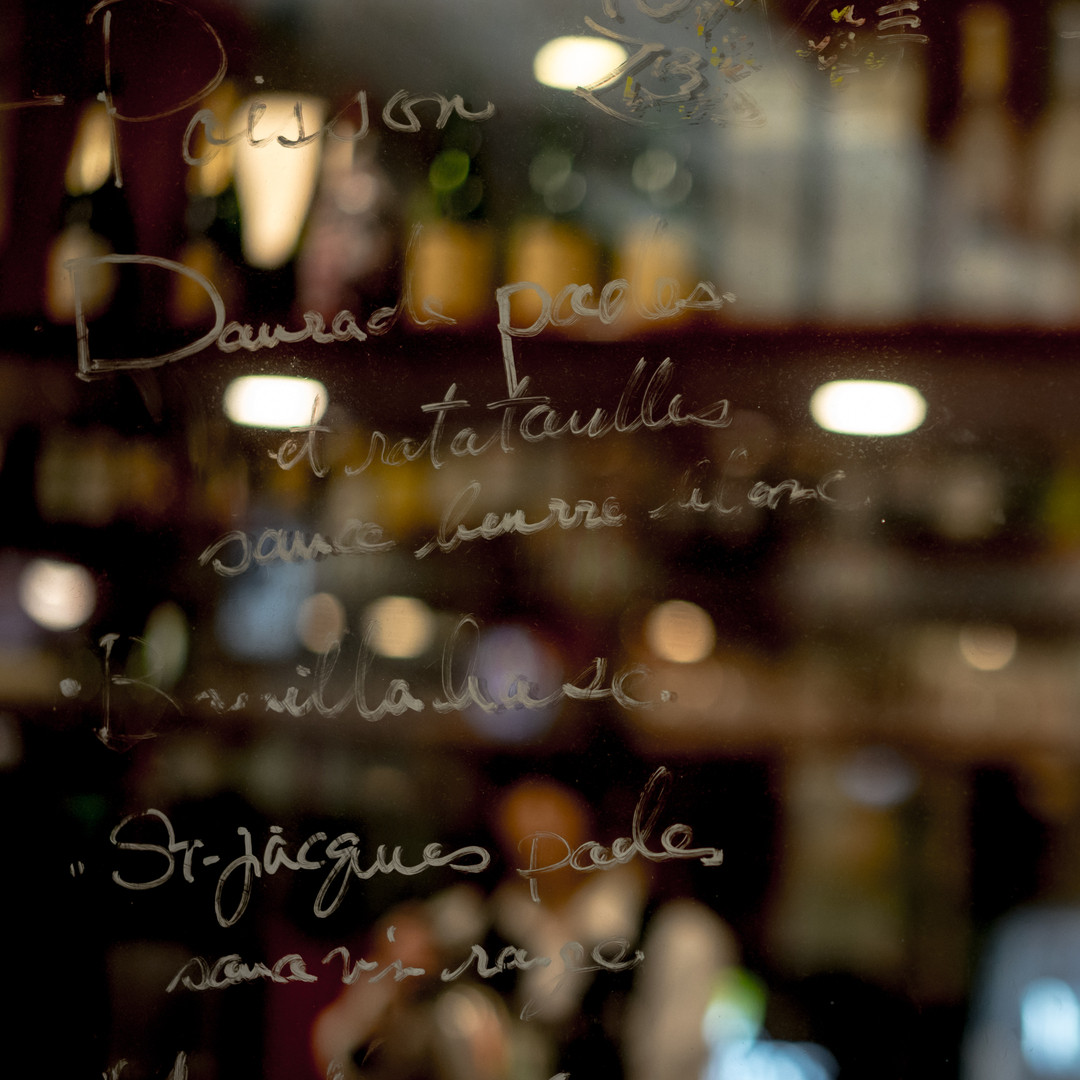 - Poisson
Daurade poeles.
et ratatouilles
sauce beurre blanc
. Bouillabasse.
St-Jacques poeles
sauce vin rouge